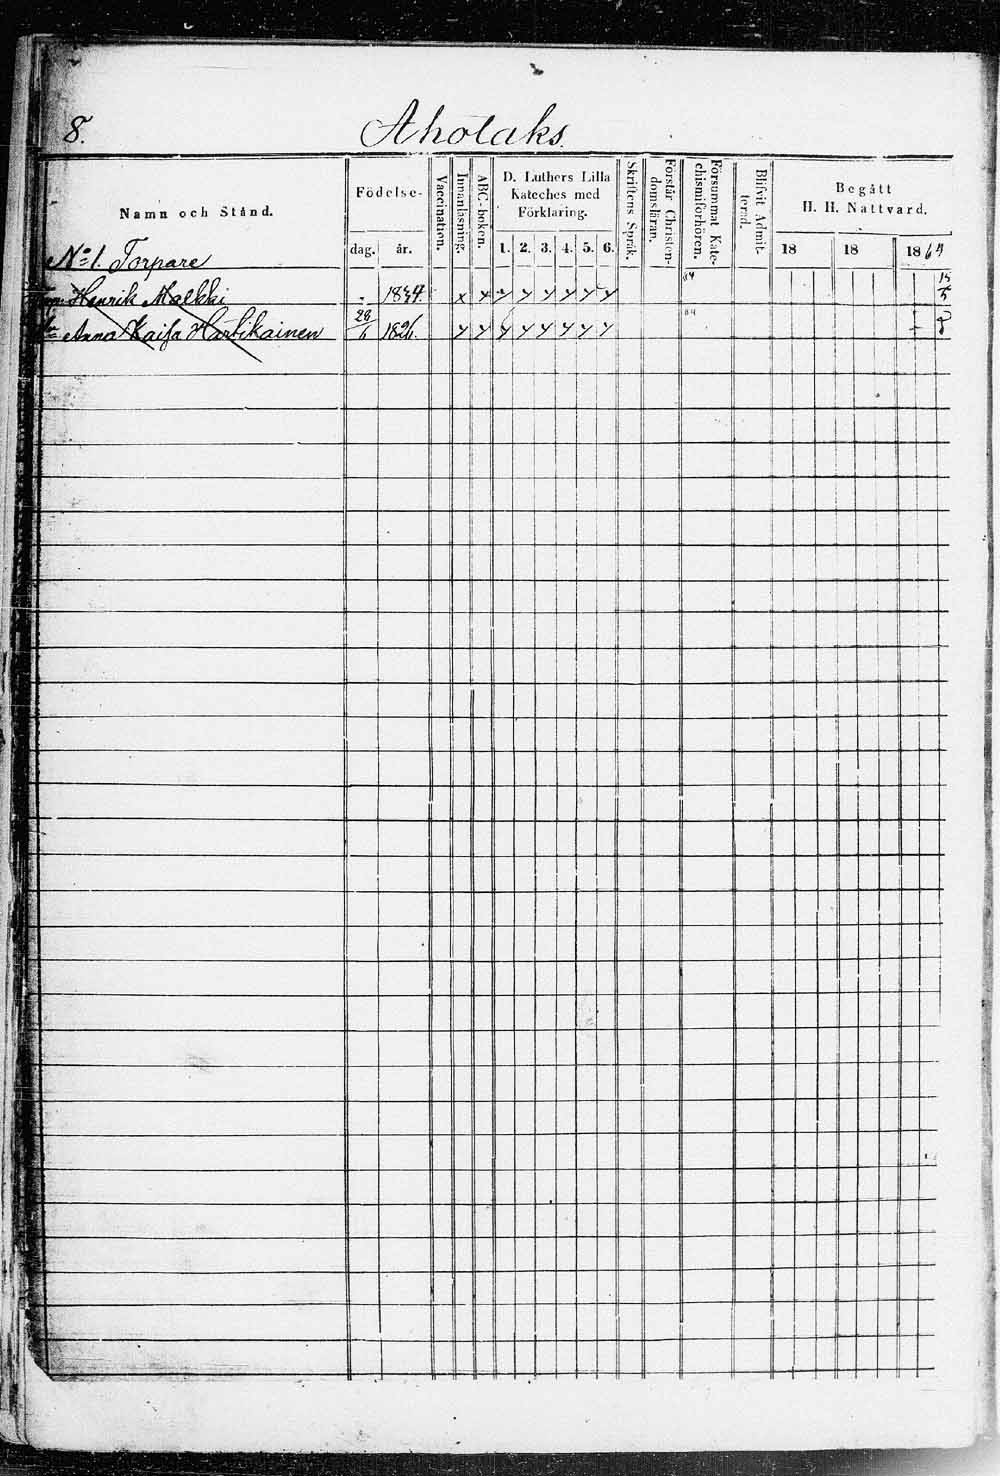 8. Aholaks.
Namn och Stånd. Födelse- dag. år. Vaccination. Innanläsning. ABC-boken. D. Luthers Lilla Kateches med Förklaring. 1. 2. 3. 4. 5. 6. Skriftens Språk. Förstår Christendomsläran. Försummat Katechismiförhören. Blifvit Admitterad. Begått H. H. Nattvard. 18 18 1864
No 1. Torpare
Henrik Malkki - 1834. x x x x x x x x 64 15/5
Anna Kaisa Hartikainen 28/6 1826. x x x x x x x x 64